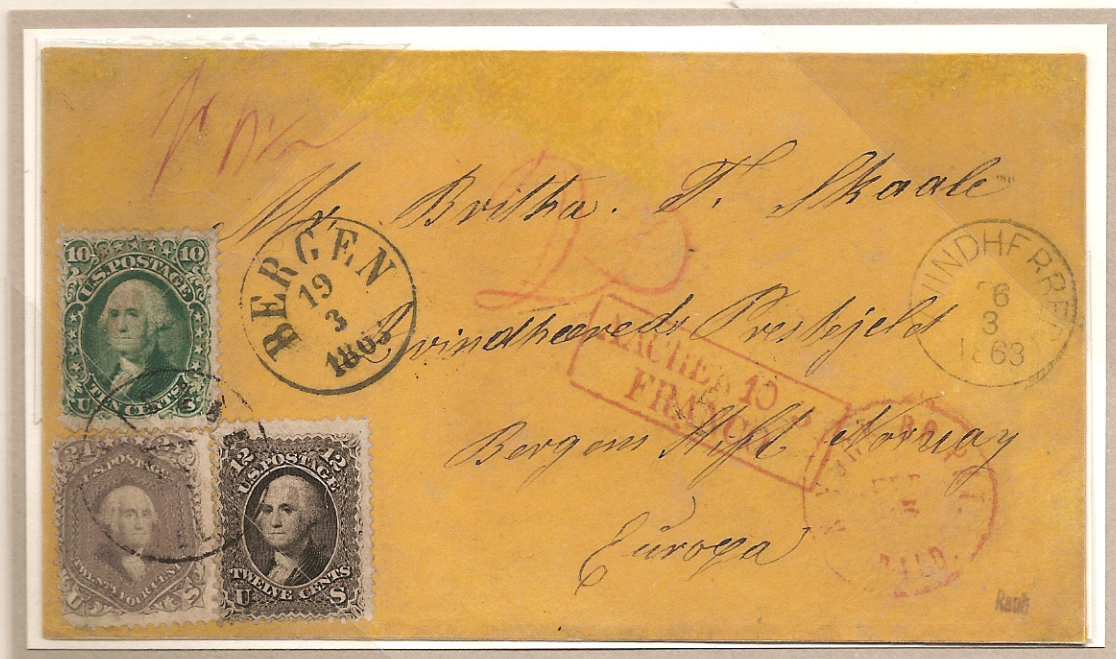 23
Mr Britha. T. Skaale
Qvindhæreds Prestejeld
Bergens Stift Norway
Europa
BERGEN
19
3
1863
3
1863
AACHEN 10
FRANCO
PAID
10 10
U.S. POSTAGE
TEN CENTS
U S
24
U.S. POSTAGE
TWENTY FOUR CENTS
U S
12 12
U.S. POSTAGE
TWELVE CENTS
U S
Raub